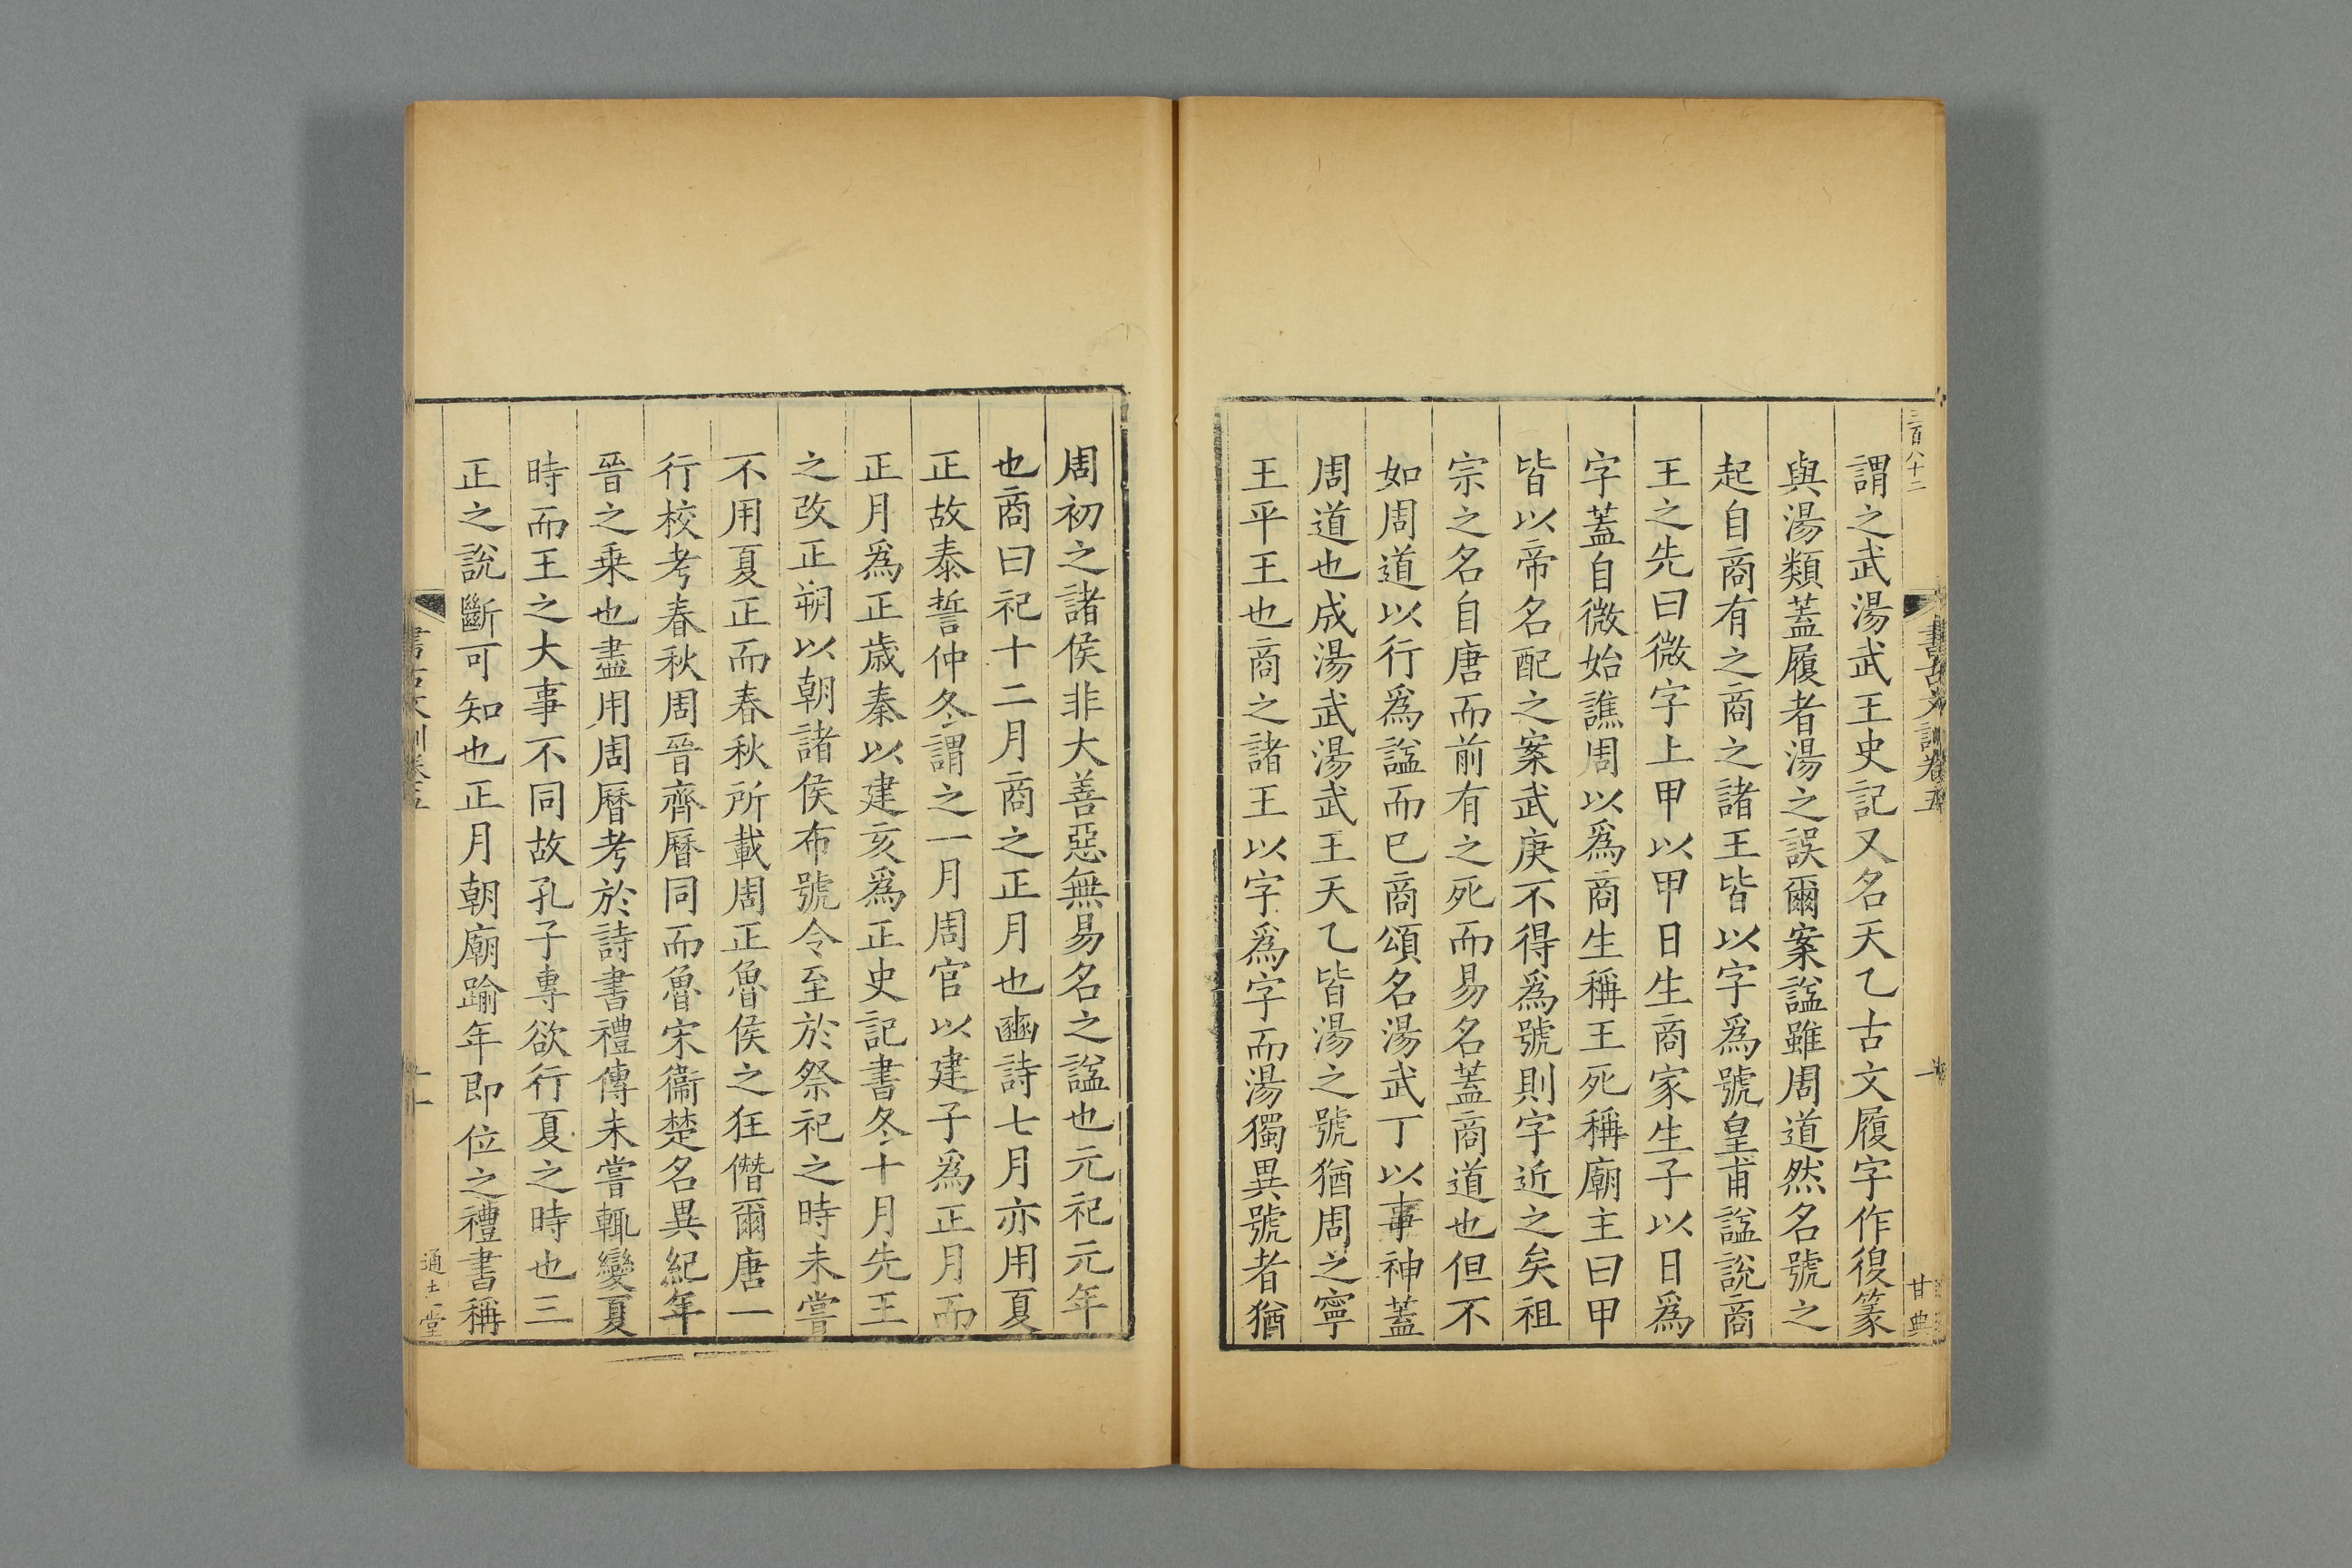 三百八十二
書古文訓卷五
甘典
謂之武湯武王史記又名天乙古文履字作復篆
與湯類蓋履者湯之誤爾案諡雖周道然名號之
起自商有之商之諸王皆以字為號皇甫諡說商
王之先曰微字上甲以甲日生商家生子以日爲
字蓋自微始譙周以爲商生稱王死稱廟主曰甲
皆以帝名配之案武庚不得爲號則字近之矣祖
宗之名自唐而前有之死而易名蓋商道也但不
如周道以行爲諡而已商頌名湯武丁以事神蓋
周道也成湯武湯武王天乙皆湯之號猶周之寧
王平王也商之諸王以字爲字而湯獨異號者猶
周初之諸侯非大善惡無易名之諡也元祀元年
也商曰祀十二月商之正月也豳詩七月亦用夏
正故泰誓仲冬謂之一月周官以建子爲正月而
正月爲正歲秦以建亥爲正史記書冬十月先王
之改正朔以朝諸侯布號令至於祭祀之時未嘗
不用夏正而春秋所載周正魯侯之狂僭爾唐一
行校考春秋周晉齊曆同而魯宋衞楚名異紀年
晉之乗也盡用周曆考於詩書禮傳未嘗輒變夏
時而王之大事不同故孔子專欲行夏之時也三
正之說斷可知也正月朝廟踰年即位之禮書稱
書古文訓卷五
十一
通志堂